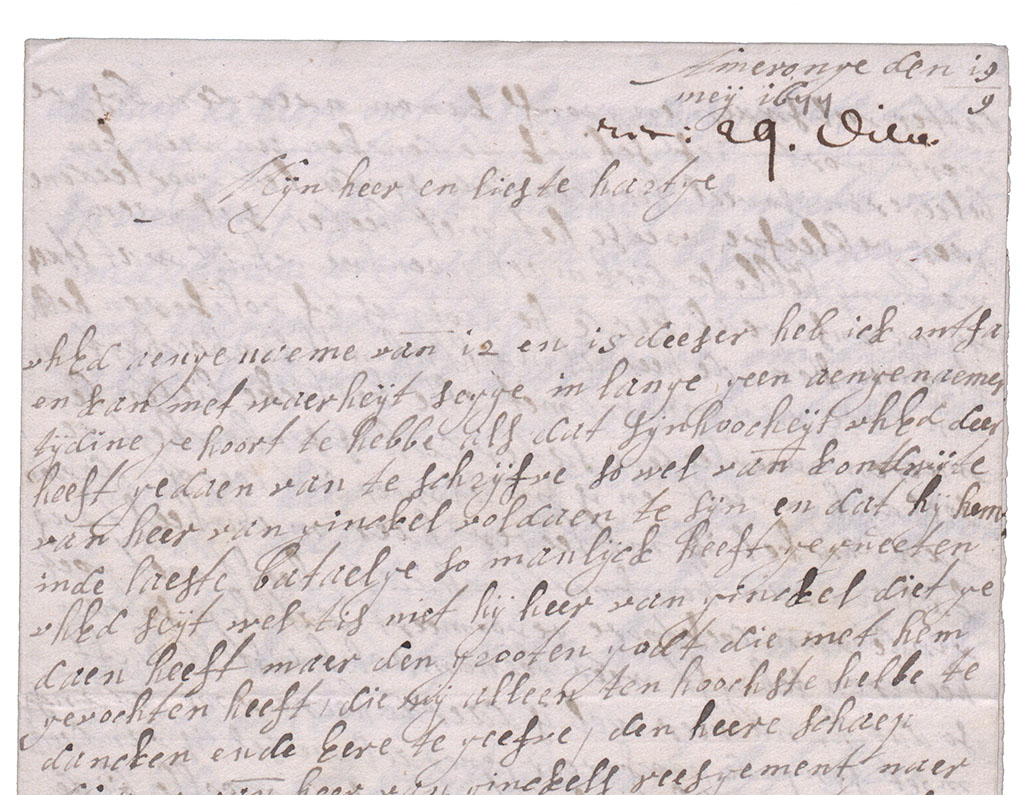 Ameronge den 19/9
meÿ 1677
rec: 29. Dito
Mÿn heer en lieste hartge
uhEd aengenaeme van 12 en 15 deeser heb ick ontfa
en kan met waerheÿt segge in lange geen aengenaemer
tÿdine gehoort te hebbe als dat sÿn hoocheÿt uhEd deer
heeft gedaen van te schrÿfve so wel van kondwite
van heer van ginckel voldaen te sÿn en dat hÿ hem
inde laeste bataelge so manlÿck heeft gequeeten
uhEd seÿt wel tis niet hÿ heer van ginckel diet ge
daen heeft maer den grooten godt die met hem
gevochten heeft, die wÿ alleen ten hoochste hebbe te
dancken ende Eere te geefve, den heere schaep
van heer van ginckels reesgement naer